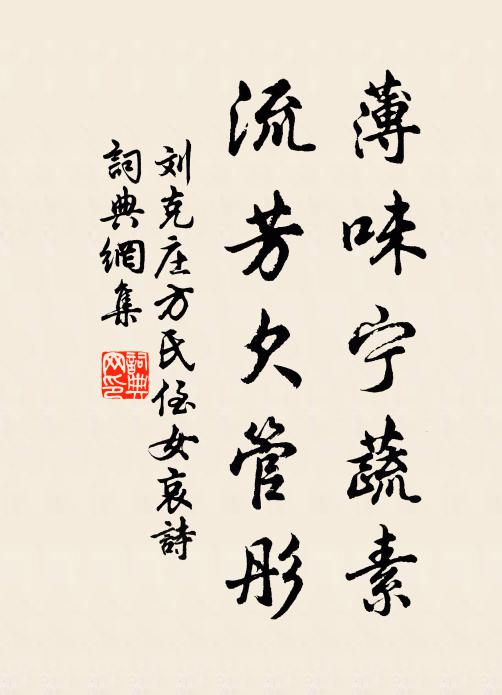 薄味宁蔬素
流芳欠管彤
刘克庄方氏侄女哀詩
詞典網集
詞典
网印